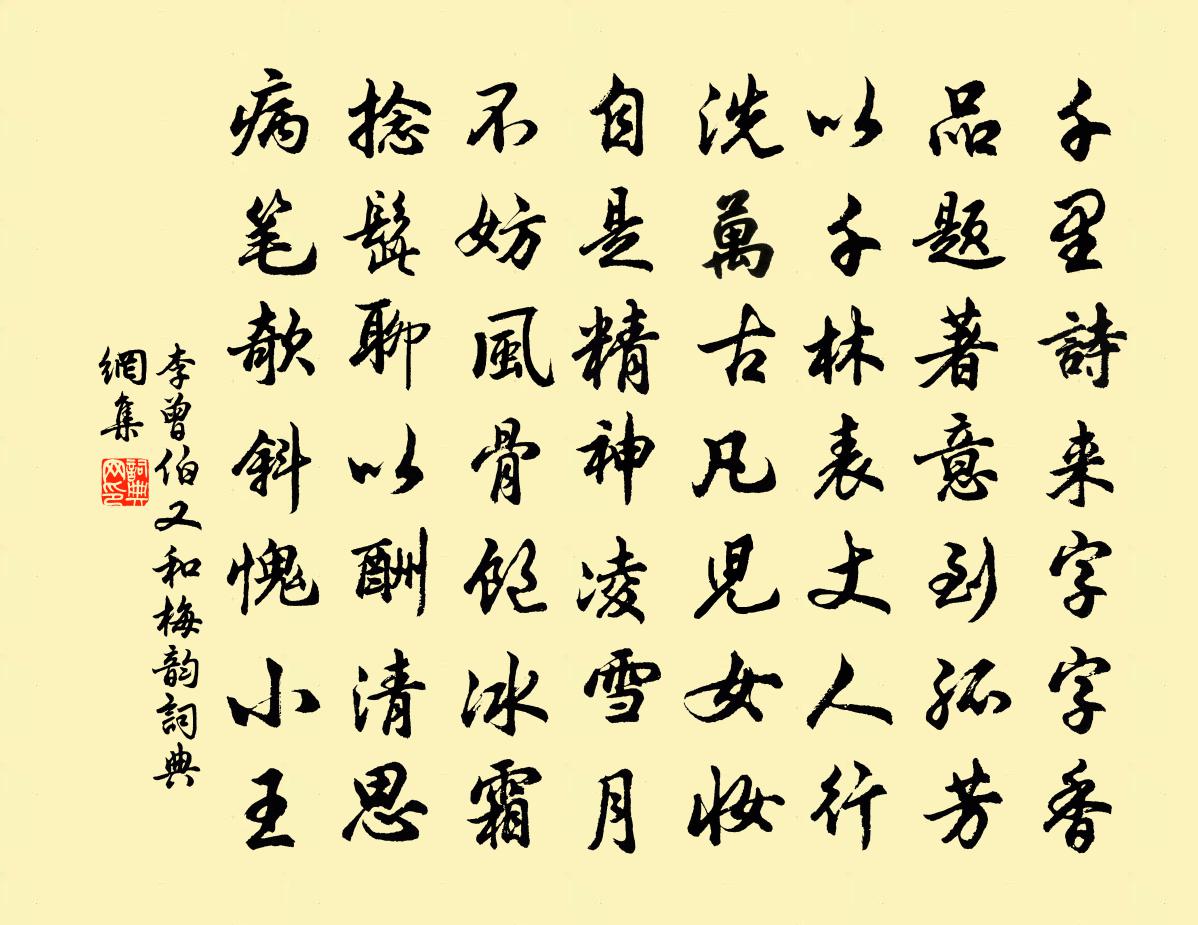 千里詩来字字香
品题著意到孤芳
以千林表丈人行
洗萬古凡児女妆
自是精神凌雪月
不妨風骨饱冰霜
捻髭聊以酬清思
病笔欹斜愧小王
李曾伯又和梅韵詞典
網集
詞典
网印